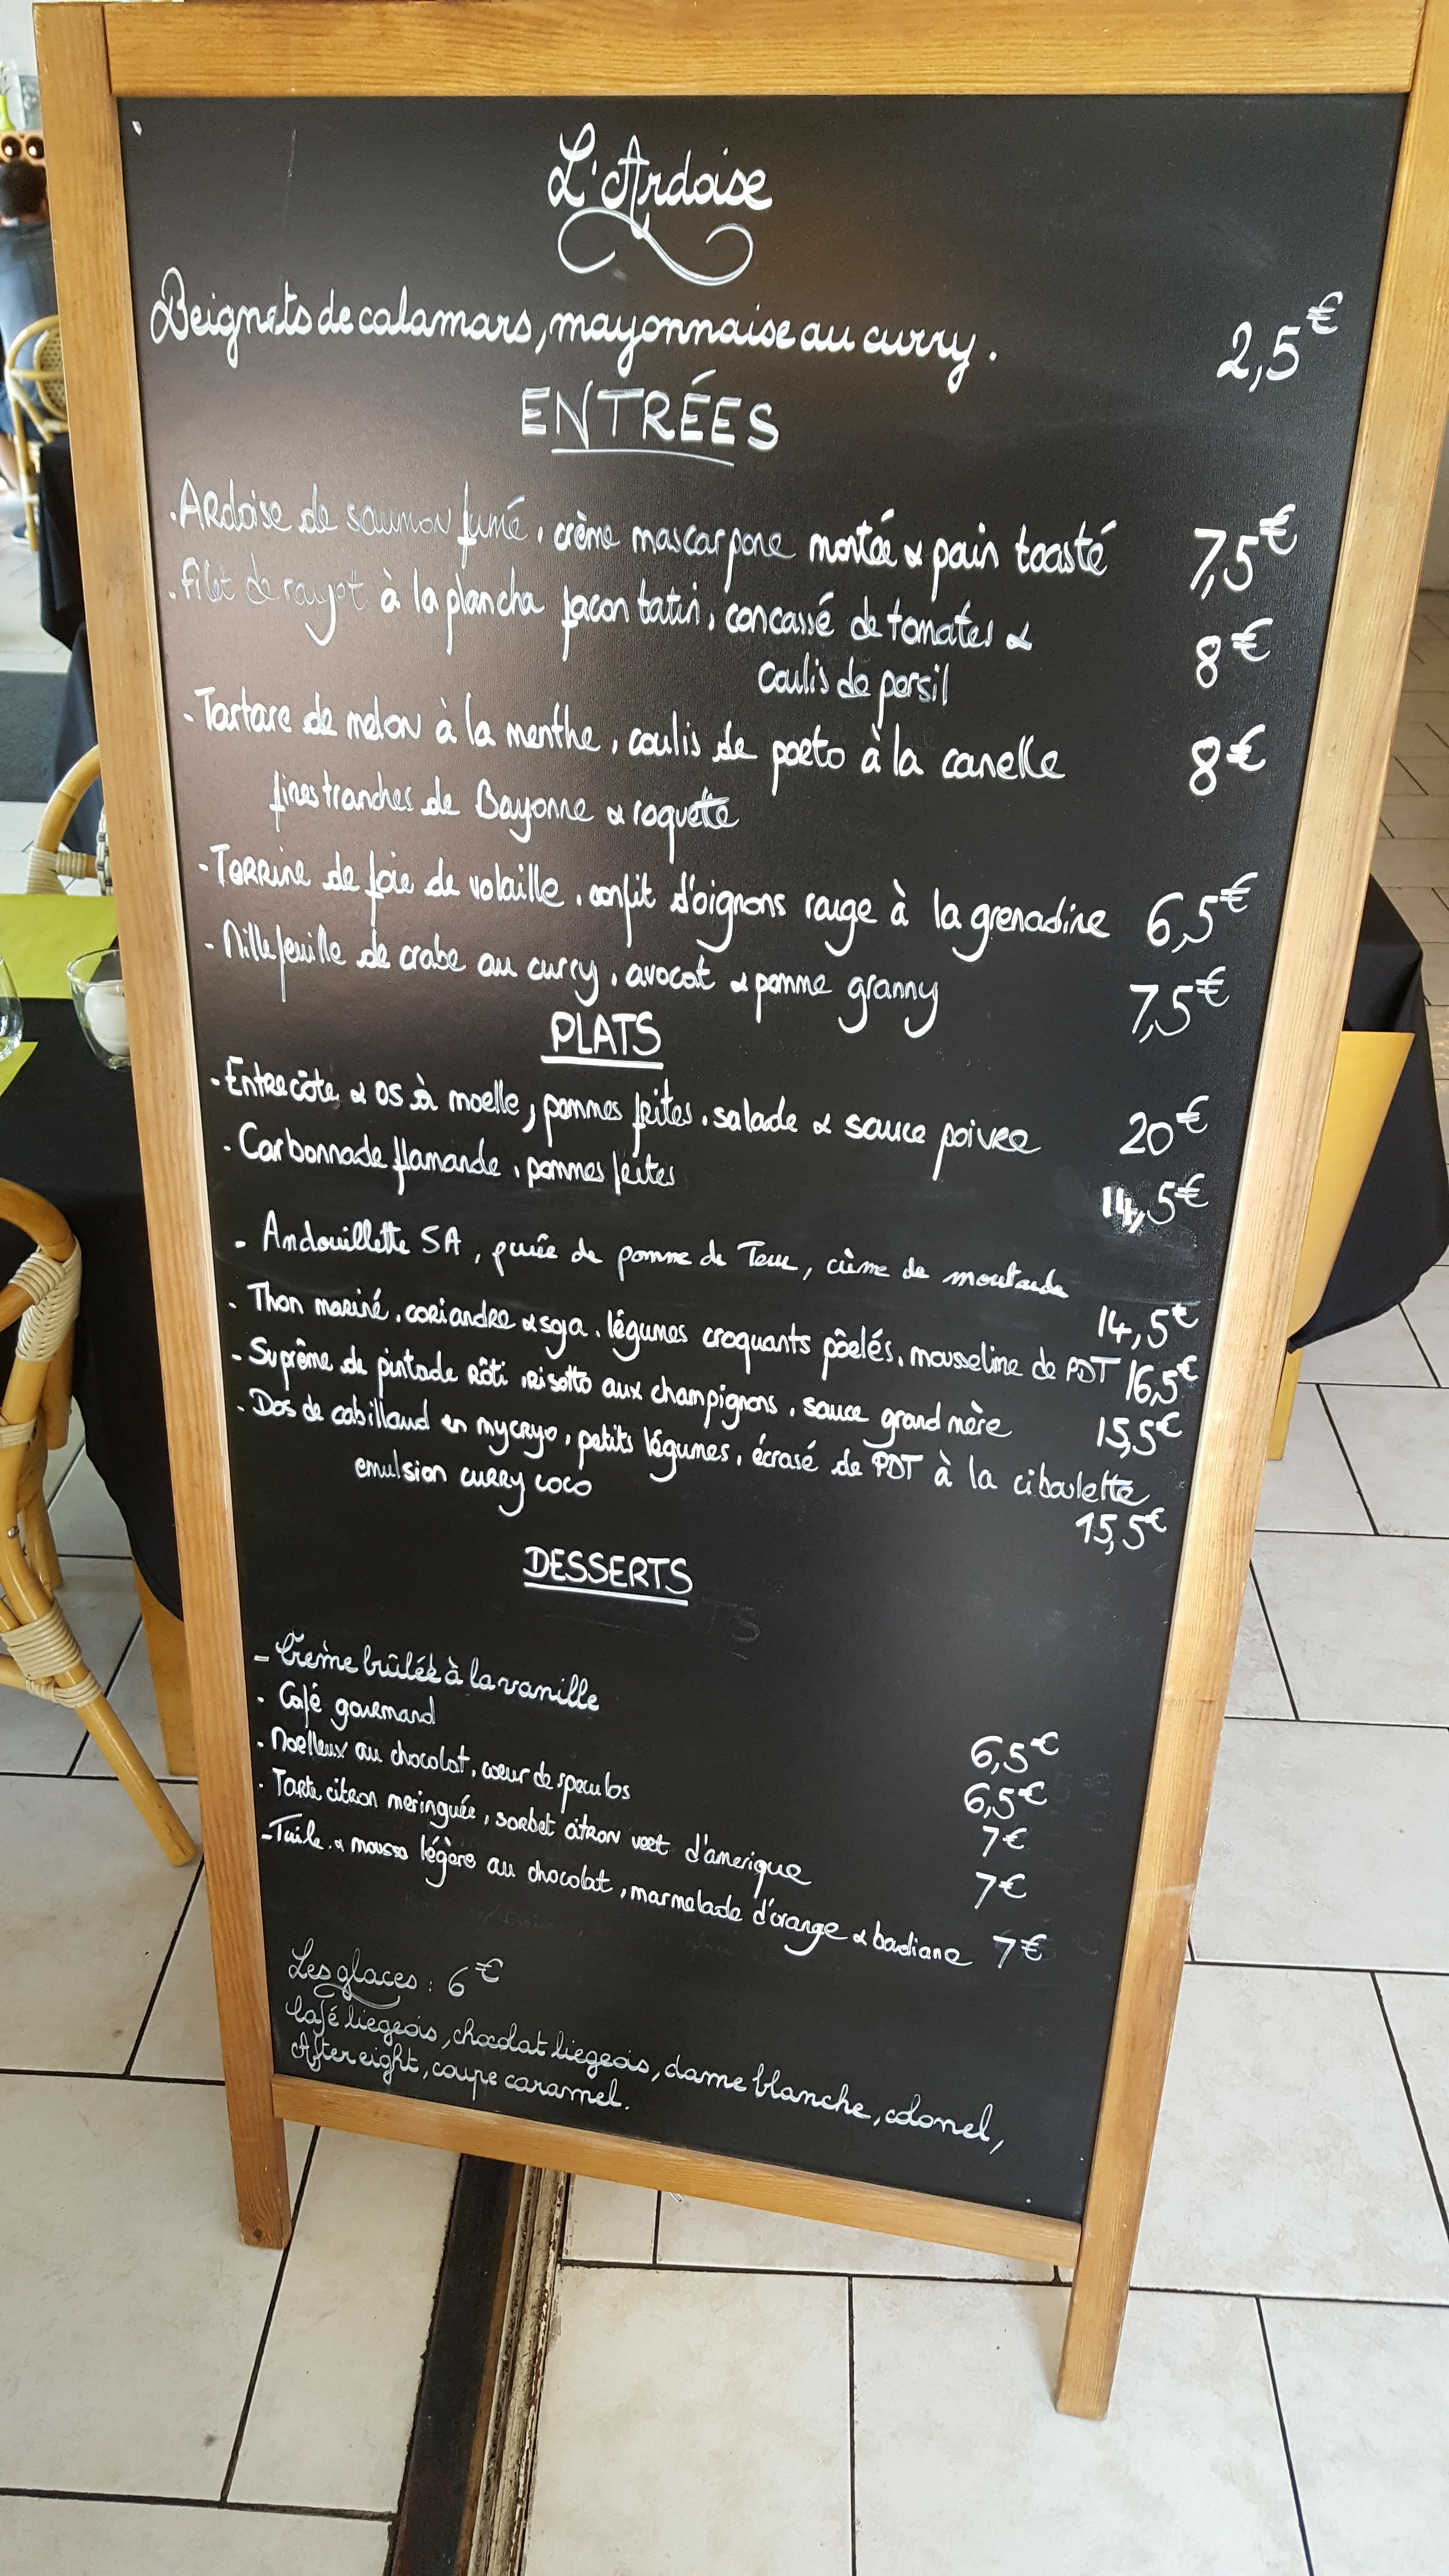 L'Ardoise
Beignets de calamars, mayonnaise au curry. 2,5€
ENTRÉES
. Ardoise de saumon fumé, crème mascarpone montée & pain toasté 7,5€
. Filet de rouget à la plancha facon tatin, concassé de tomates & 8€
coulis de persil
- Tartare de melon à la menthe, coulis de porto à la canelle 8€
fines tranches de Bayonne & roquette
- Terrine de foie de volaille, confit d'oignons rouge à la grenadine 6,5€
- Millefeuille de crabe au curry, avocat & pomme granny 7,5€
PLATS
. Entrecôte & os à moelle, pommes frites, salade & sauce poivre 20€
. Carbonnade flamande, pommes frites 14,5€
- Andouillette 5A, purée de pomme de Terre, crème de moutarde 14,5€
. Thon mariné, coriandre & soja, légumes croquants pôelés, mousseline de PDT 16,5€
- Suprême de pintade rôti, risotto aux champignons, sauce grand mère 15,5€
. Dos de cabillaud en mycryo, petits légumes, écrasé de PDT à la ciboulette
emulsion curry coco 15,5€
DESSERTS
- Crème brûlée à la vanille 6,5€
. Café gourmand 6,5€
. Moelleux au chocolat, coeur de speculos 7€
. Tarte citron meringuée, sorbet citron vert d'amerique 7€
- Tuile & mousse légère au chocolat, marmelade d'orange & badiane 7€
Les glaces : 6€
Café liegeois, chocolat liegeois, dame blanche, colonel,
After eight, coupe caramel.